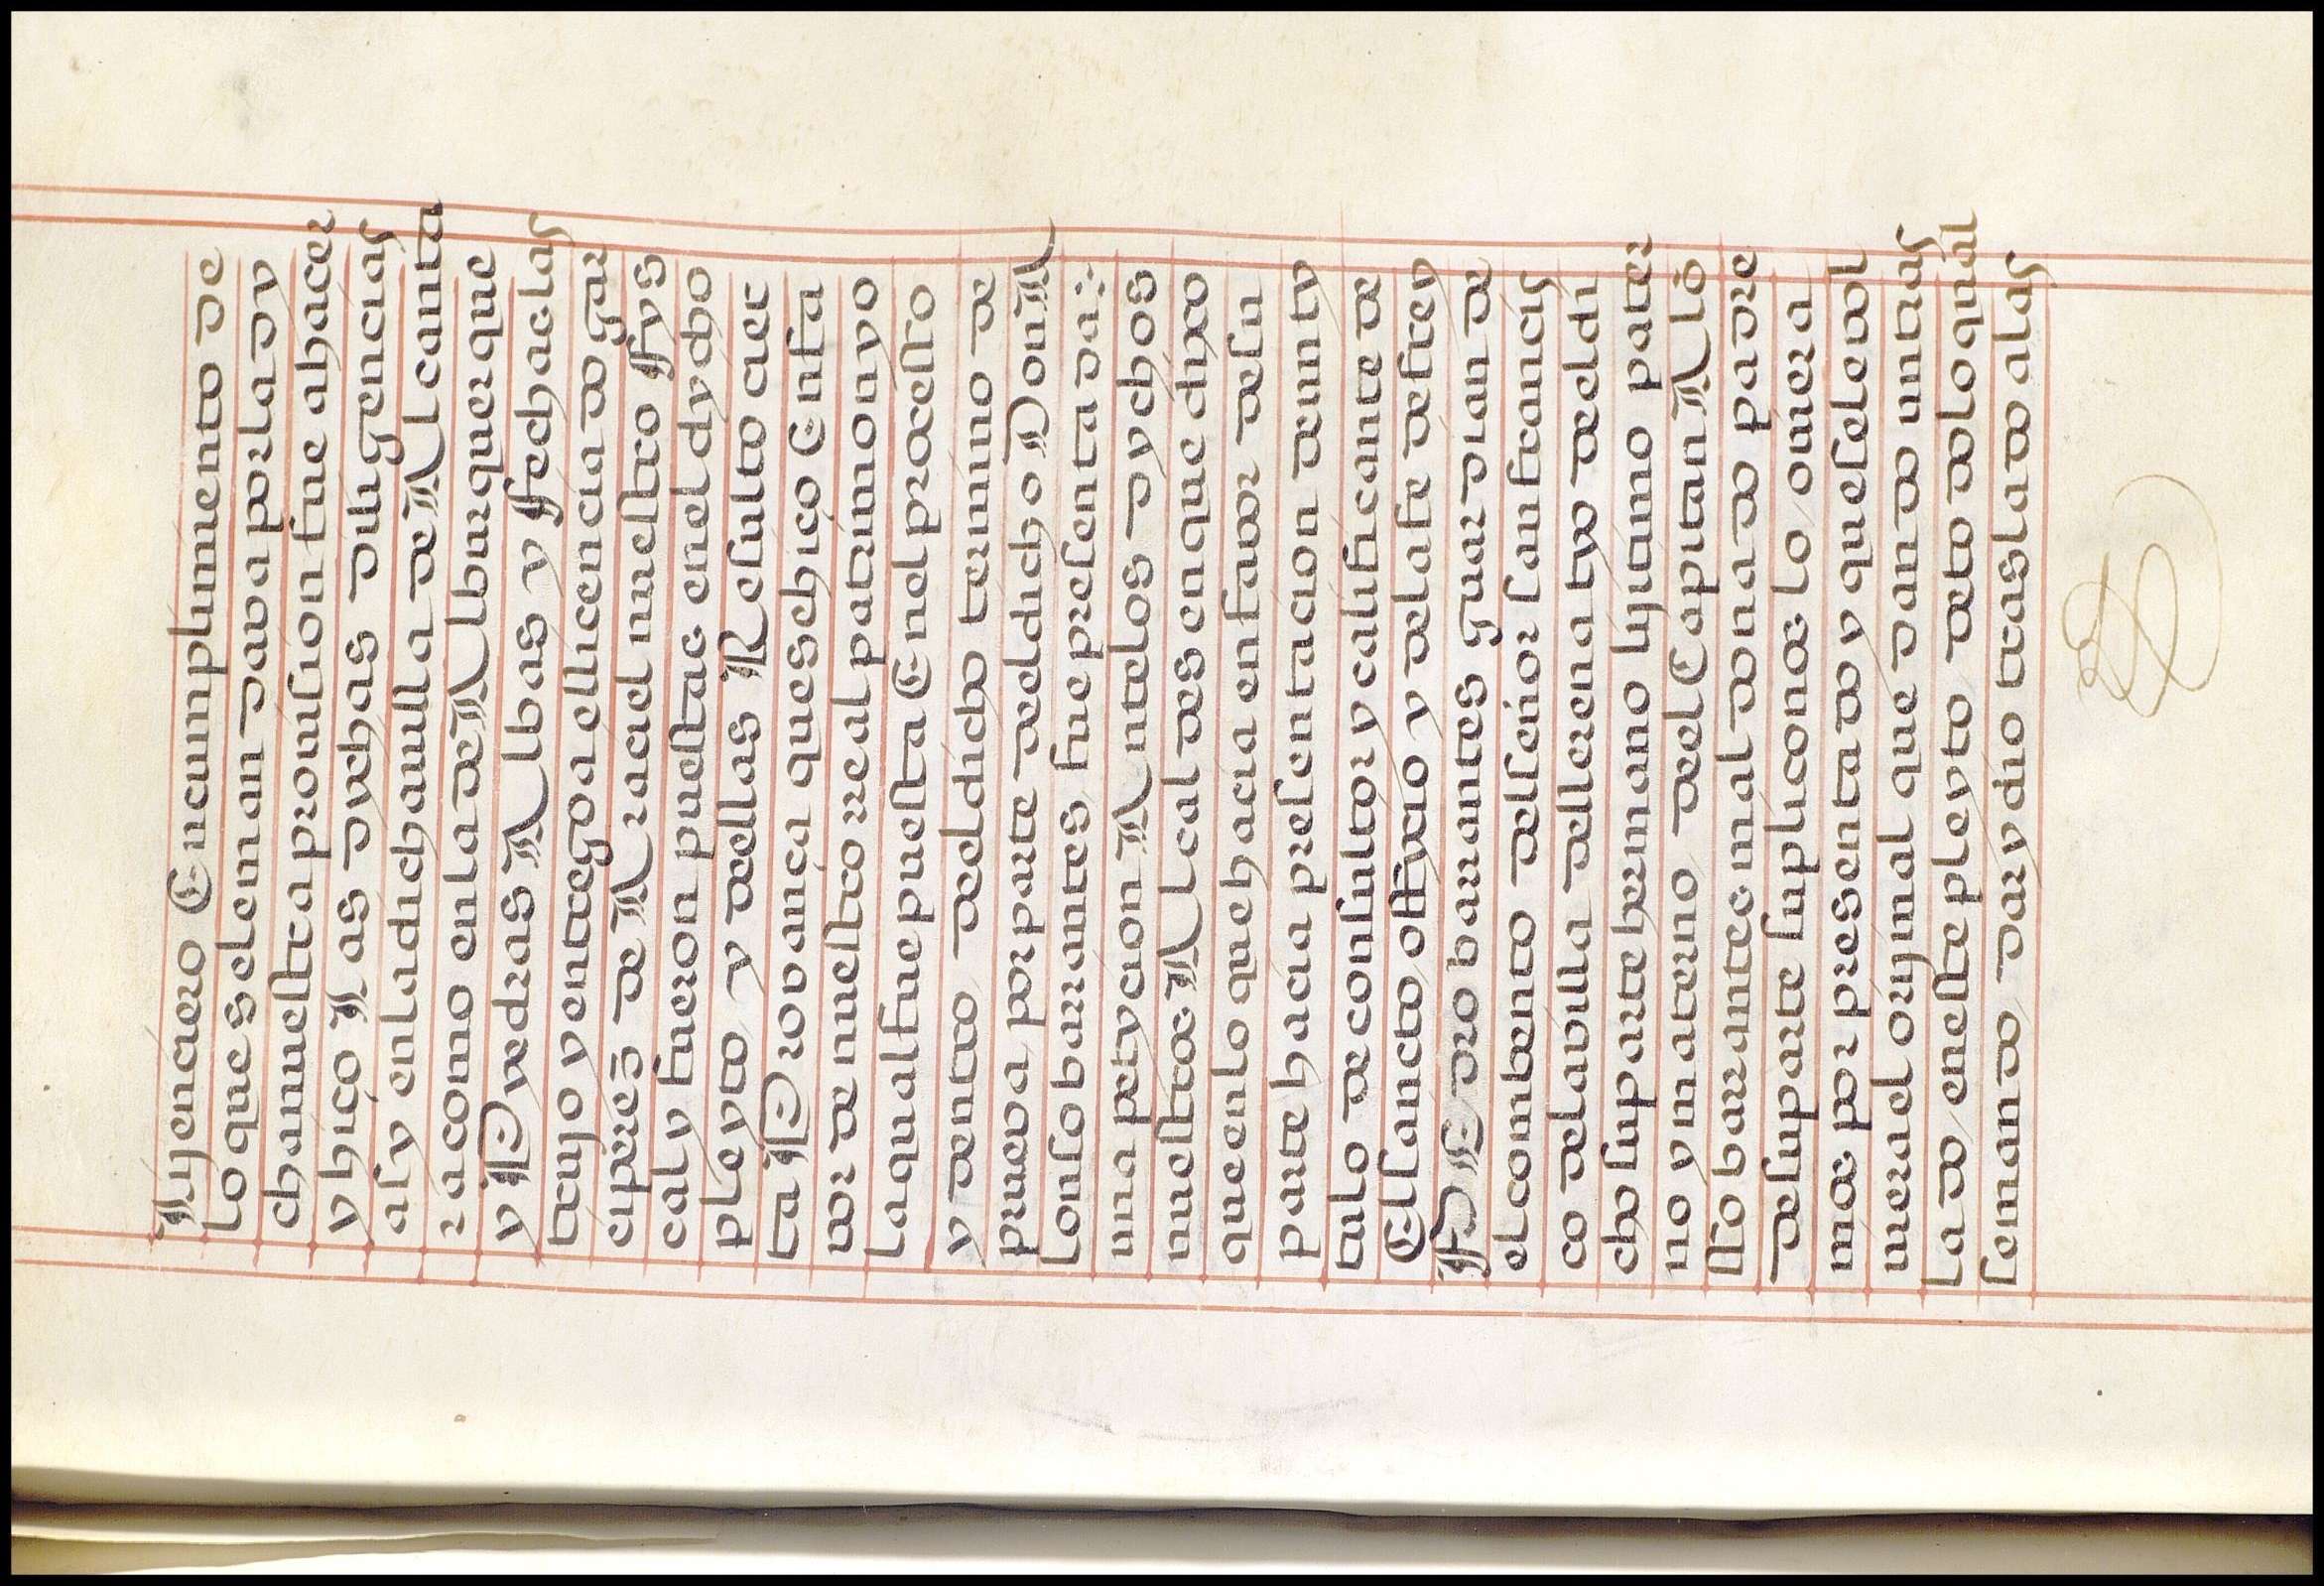 Lyjençiero En cumplimiento de
lo que se le mandava por la dy
cha nuestra provision fue a hacer
y hiço Las dychas diligencias
asy en la dicha villa de Alcanta
ra como en la de Alburquerque
y Pyedras Albas y Fechas las
truxo y entrego a el licenciado gar
ci perez de Araciel nuestro Fys
cal y fueron puestas en el dycho
pleyto y de ellas Resulto cier
ta Provança que se hiço En fa
vor de nuestro real patrimonyo
la qual fue puesta En el proçesso
y dentro del dicho termino de
prueva por parte del dicho Don A
lonso barrantes fue presentada
una petycion Ante los dychos
nuestros Alcaldes en que dixo
que en lo que hacia en favor de su
parte hacia presentacion de un ty
tulo de consultor y calificante de
El sancto offycio y de la fe de frey
PEdro barantes guardian de
el combento del señor san francis
co de la villa de llerena tyo del di
cho su parte hermano lijitimo pater
no y materno del Capitan Alō
sso barrantes maldonado padre
de su parte suplico nos lo oviera
mos por presentado y que se le vol
viera el orijinal que dando un tras
lado en este pleyto de to de lo qual
se mando dar y dio traslado a las